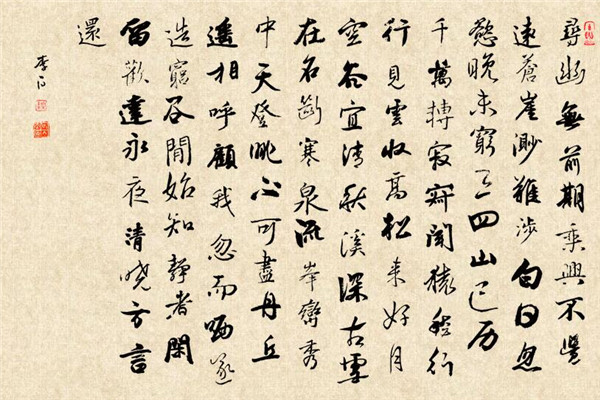 尋幽無前期乘興不覺
遠蒼崖渺難涉白日忽
慾晚未窮三四山已历
千萬轉寂寂聞猿愁行
行見雲收高松來好月
空谷宜清秋溪深古雪
在石斷寒泉流峯巒秀
中天登眺不可盡丹丘
遙相呼顧我忽而哂遂
造窮谷間始知靜者閑
留歡達永夜清曉方言
還
李白